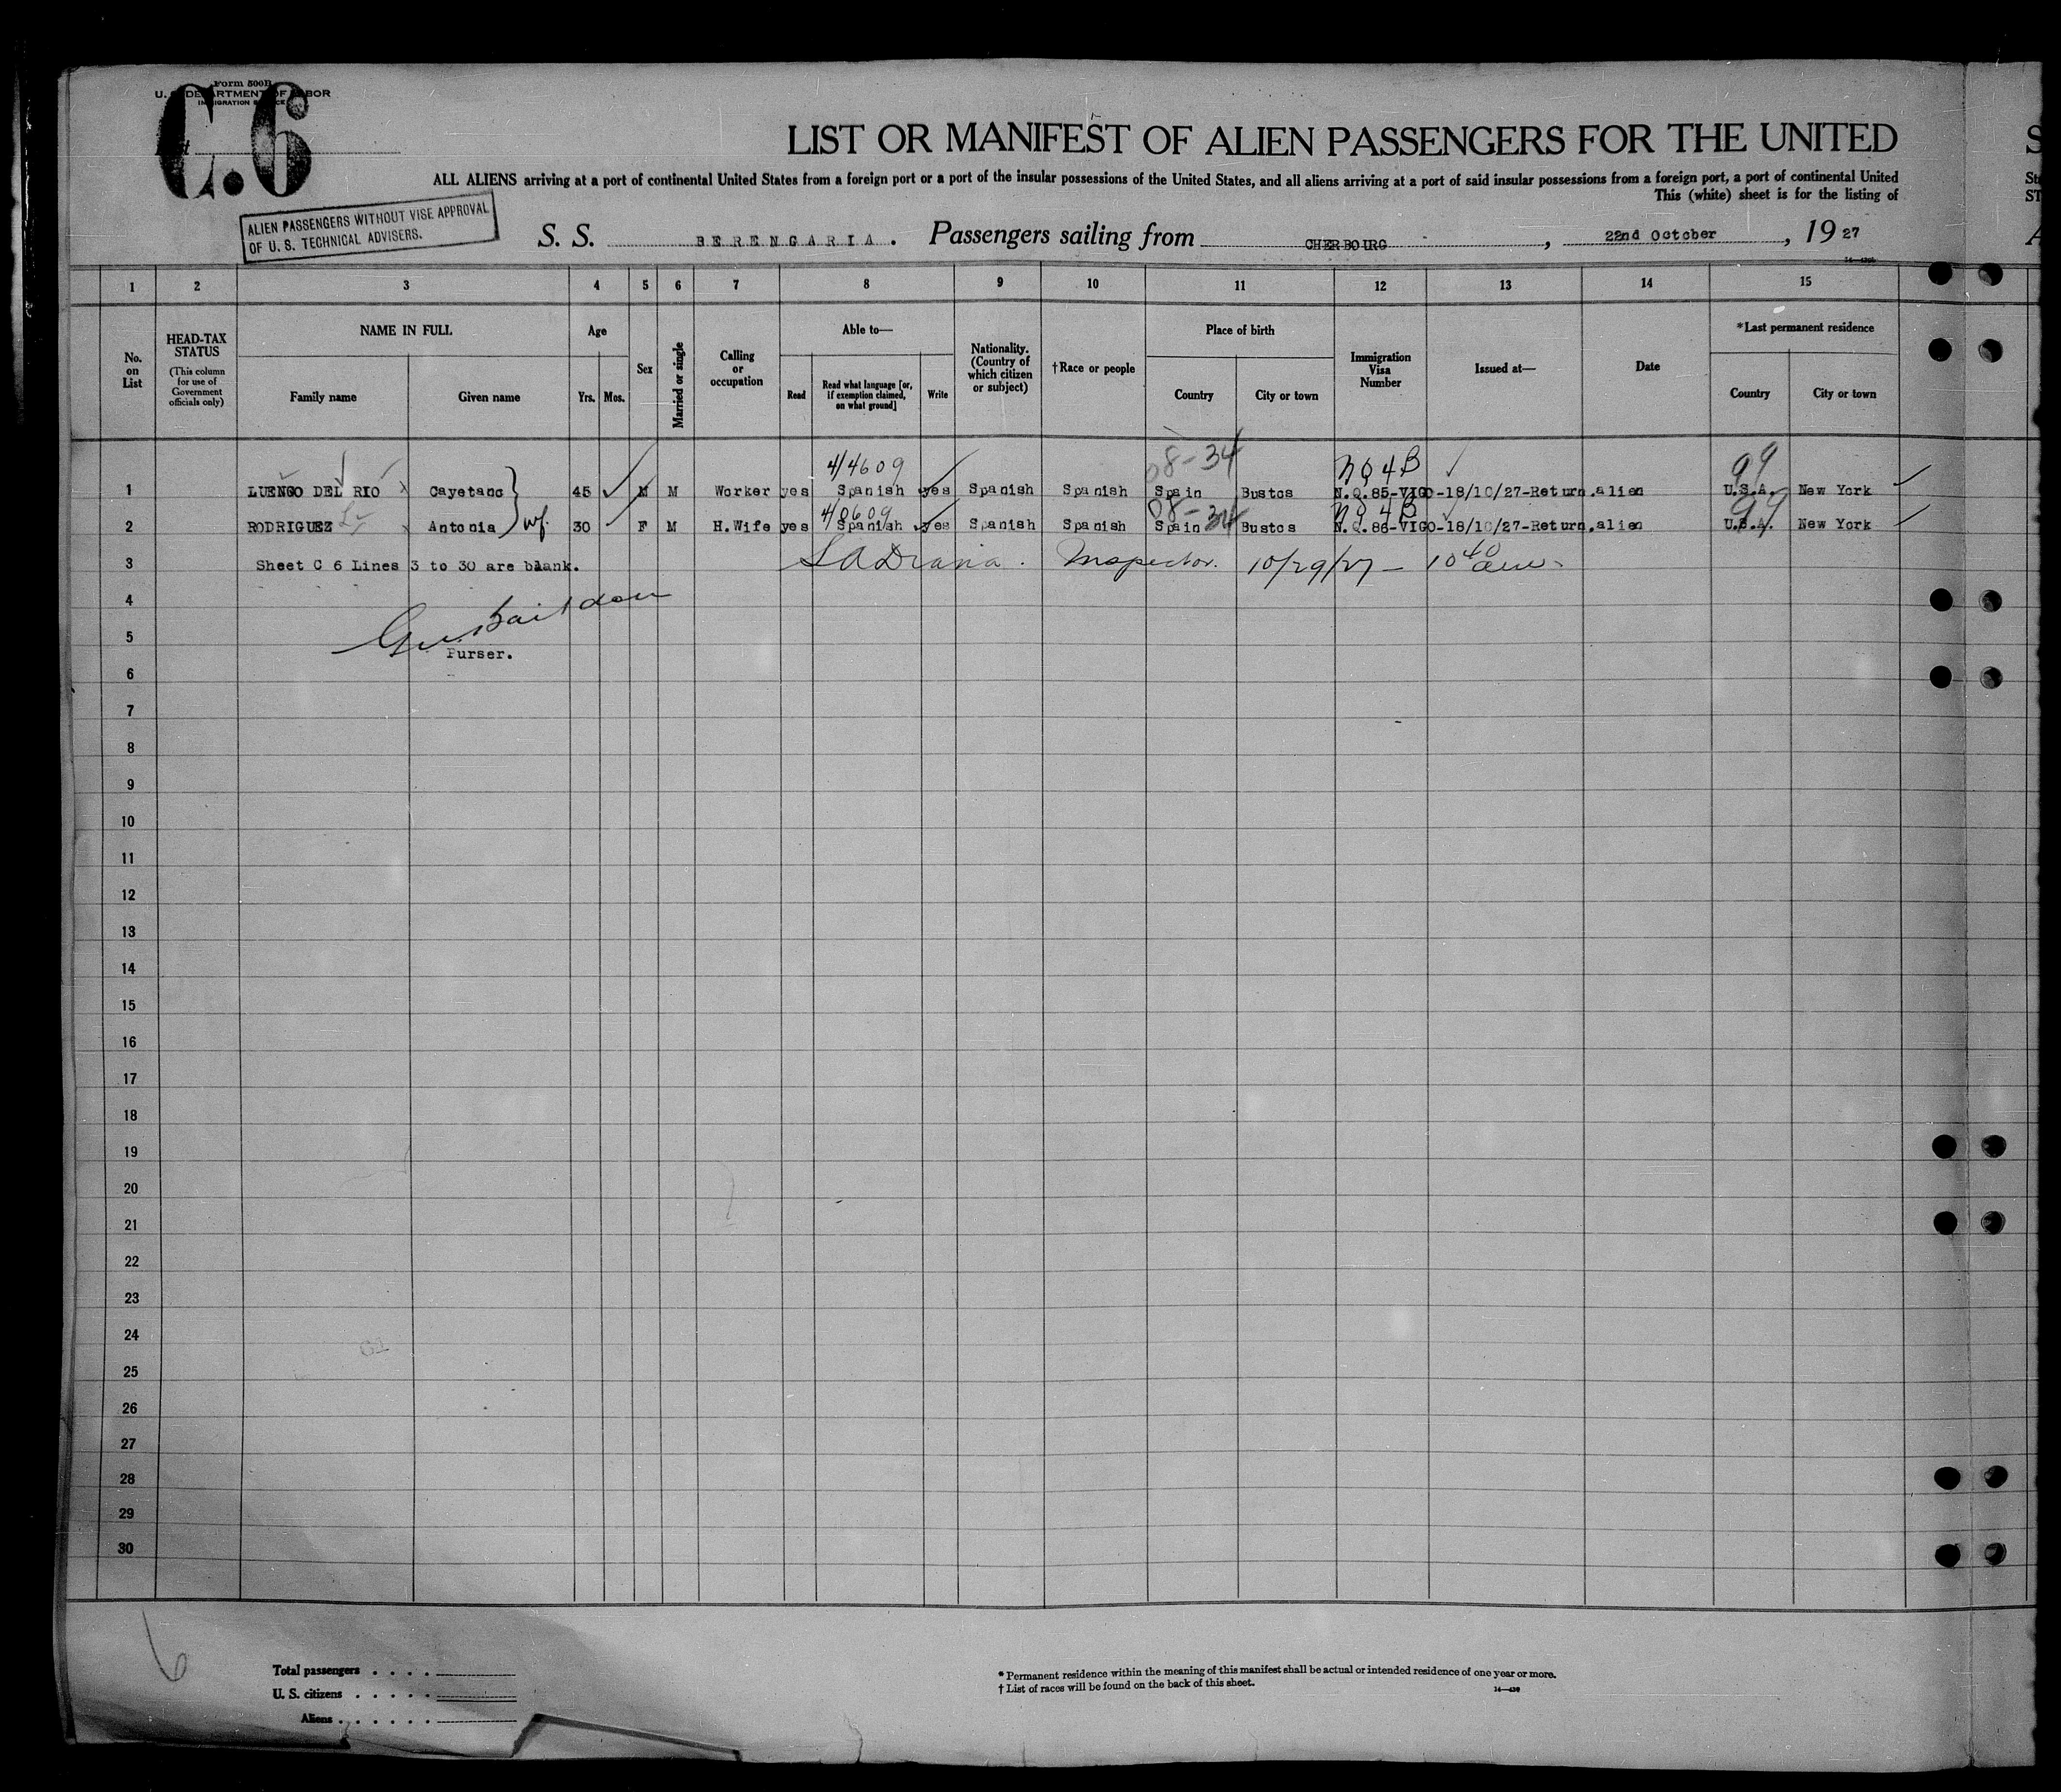 Form 500B
U. S. DEPARTMENT OF LABOR
IMMIGRATION SERVICE
C.6
LIST OR MANIFEST OF ALIEN PASSENGERS FOR THE UNITED
ALL ALIENS arriving at a port of continental United States from a foreign port or a port of the insular possessions of the United States, and all aliens arriving at a port of said insular possessions from a foreign port, a port of continental United
This (white) sheet is for the listing of
ALIEN PASSENGERS WITHOUT VISE APPROVAL
OF U. S. TECHNICAL ADVISERS.
S. S. BERENGARIA. Passengers sailing from CHERBOURG, 22nd October, 1927
1 2 3 4 5 6 7 8 9 10 11 12 13 14 15
No. on List
HEAD-TAX STATUS (This column for use of Government officials only)
NAME IN FULL
Family name
Given name
Age
Yrs. Mos.
Sex
Married or single
Calling or occupation
Able to—
Read
Read what language [or, if exemption claimed, on what ground]
Write
Nationality. (Country of which citizen or subject)
†Race or people
Place of birth
Country
City or town
Immigration Visa Number
Issued at—
Date
*Last permanent residence
Country
City or town
4/4609 08-34 NQ4B 99
1 LUENGO DEL RIO Cayetano 45 M M Worker yes Spanish yes Spanish Spanish Spain Bustos N.Q.85-VIGO-18/10/27-Return.alien U.S.A. New York
4/0609 08-34 NQ4B 99
2 RODRIGUEZ Antonia wf. 30 F M H.Wife yes Spanish yes Spanish Spanish Spain Bustos N.Q.86-VIGO-18/10/27-Return.alien U.S.A. New York
3 Sheet C 6 Lines 3 to 30 are blank. Inspector. 10/29/27 — 10 40 am.
4
5
Purser.
6
7
8
9
10
11
12
13
14
15
16
17
18
19
20
21
22
23
24
25
26
27
28
29
30
6
Total passengers . . . .
U. S. citizens . . . . .
Aliens . . . . . .
* Permanent residence within the meaning of this manifest shall be actual or intended residence of one year or more.
† List of races will be found on the back of this sheet.
14—430